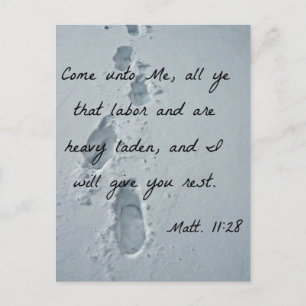 Come unto Me, all ye
that labor and are
heavy laden, and I
will give you rest.
Matt. 11:28